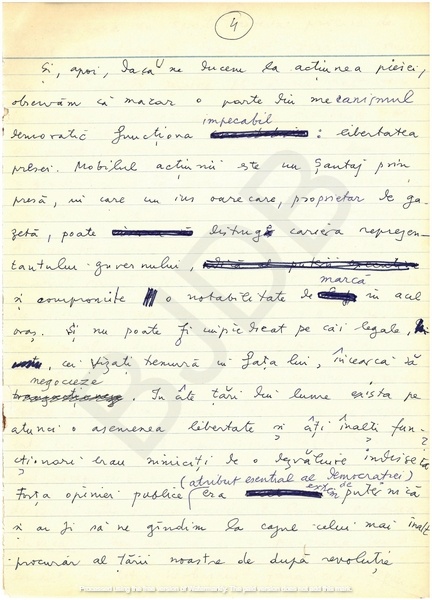 4
Și, apoi, dacă ne ducem la acțiunea piesei,
observăm că măcar o parte din mecanismul
democratic funcționa impecabil : libertatea
presei. Mobilul acțiunii este un șantaj prin
presă, în care un ins oarecare, proprietar de ga-
zetă, poate distruge cariera reprezen-
tantului guvernului,
și compromite o notabilitate de marcă în acel
oraș. Și nu poate fi împiedicat pe căi legale,
cu vizați tremură în fața lui, încearcă să
negocieze . În câte țări din lume exista pe
atunci o asemenea libertate și câți înalți fun-
cționari erau nimiciți de o dezvăluire indiscretă?
Forța opiniei publice (atribut esențial al democrației) era extrem de puternică
și ar fi să ne gândim la cazul celui mai înalt
procuror al țării noastre de după revoluție
BJDB